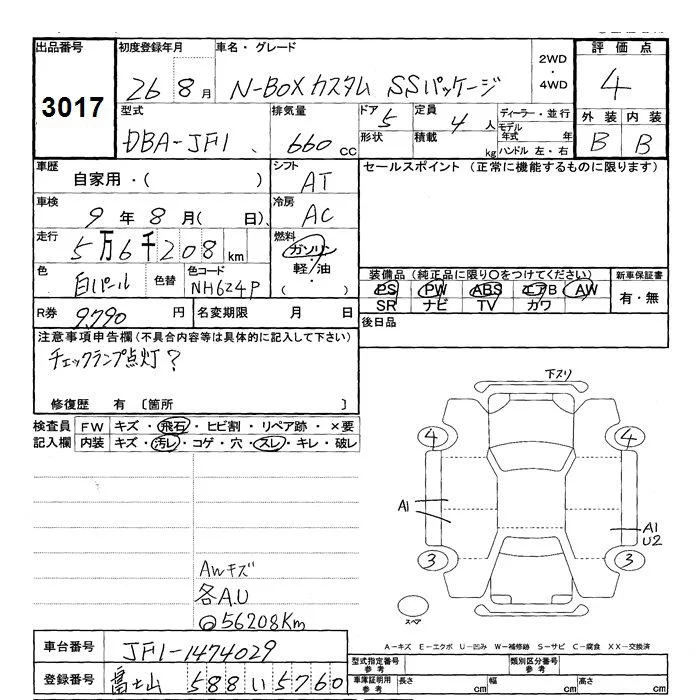 出品番号 初度登録年月 車名・グレード 2WD・4WD 評価点
3017 26 8月 N-BOX カスタム SSパッケージ 4
型式 排気量 ドア 5 定員 4人 ディーラー・並行 外装 内装
DBA-JF1 660cc 形状 積載 kg モデル年式 年 B B
ハンドル 左・右
車歴 自家用・( ) シフト AT セールスポイント (正常に機能するものに限ります)
車検 9年8月( 日) 冷房 AC
走行 5万6千208km 燃料 ガソリン
軽・油
( )
色 白パール 色替 色コード NH624P 装備品 (純正品に限り○をつけてください) 新車保証書
PS PW ABS エアB AW 有・無
SR ナビ TV カワ
R券 9,790円 名変期限 月 日 後日品
注意事項申告欄 (不具合内容等は具体的に記入して下さい)
チェックランプ点灯?
修復歴 有 〔箇所 〕
検査員 FW キズ・飛石・ヒビ割・リペア跡・×要
記入欄 内装 キズ・汚レ・コゲ・穴・スレ・キレ・破レ
下スリ
4 4
A1 A1
U2
3 3
スペア
AWキズ
各A.U
56208Km
A-キズ E-エクボ U-凹み W-補修跡 S-サビ C-腐食 XX-交換済
車台番号 JF1-1474029 型式指定番号 参考 類別区分番号 参考
登録番号 富士山 588 い 5760 車庫証明用 参考 長さ cm 幅 cm 高さ cm